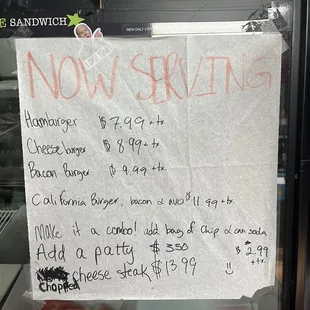 E SANDWICH
NOW SERVING
Hamburger $7.99 + tx
Cheese burger $ 8.99 + tx
Bacon Burger $ 9.99 + tx.
California Burger, bacon & avo $11.99 + tx.
Make it a combo! add bag of chip & can soda
Add a patty $ 350 $ 2.99 + tx
Chopped cheese steak $13.99